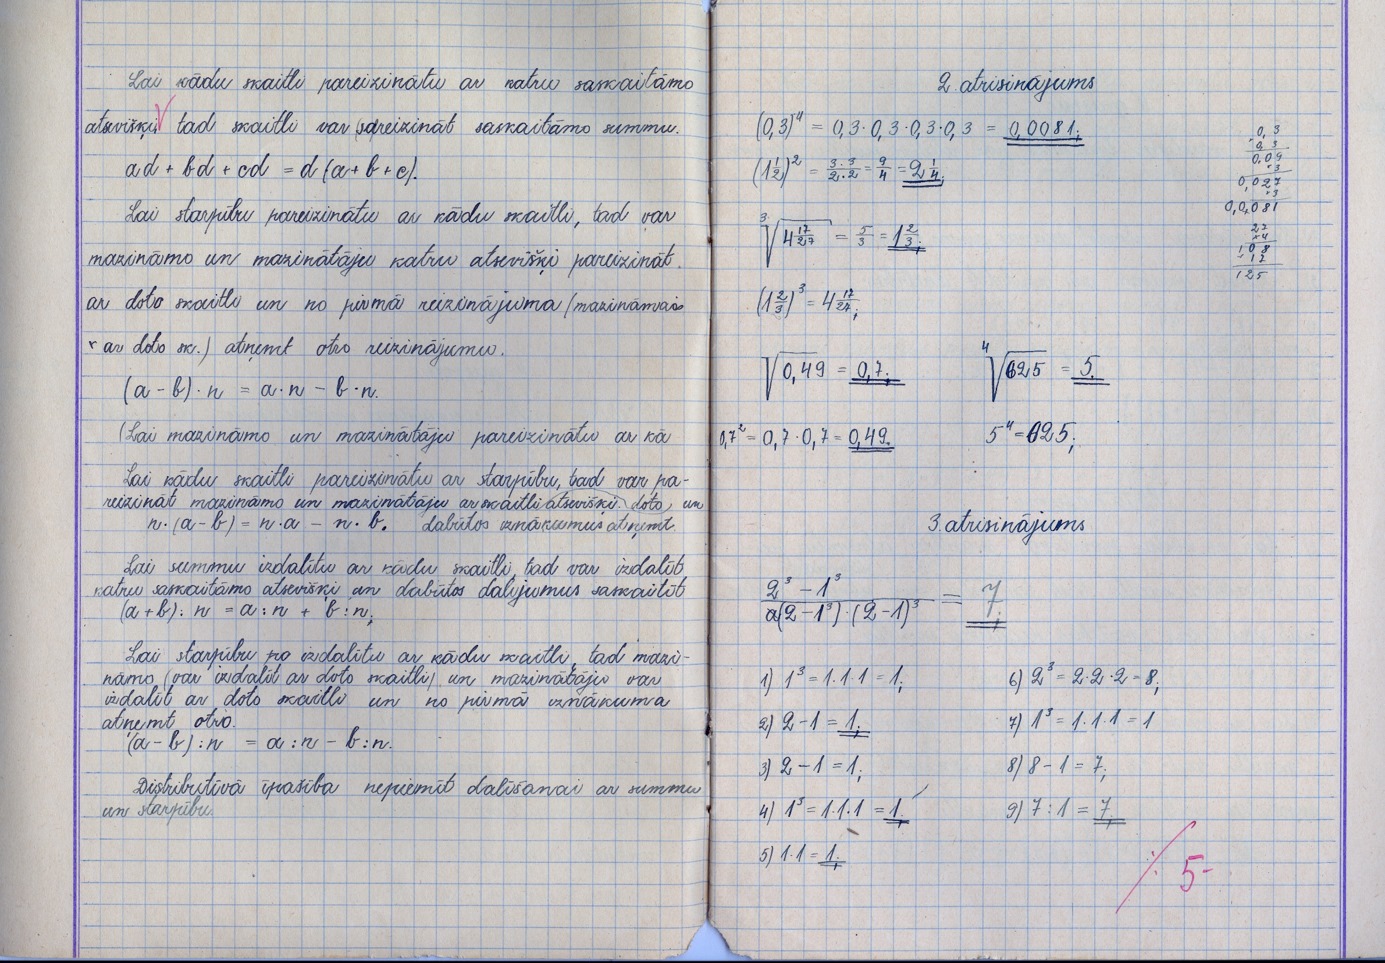 Lai kādu skaitli pareizinātu ar katru saskaitāmo
atsevišķi tad skaitli var sareizināt saskaitāmo summu.
ad + bd + cd = d (a + b + c).
Lai starpību pareizinātu ar kādu skaitli, tad var
mazināmo un mazinātāju katru atsevišķi pareizināt
ar doto skaitli un no pirmā reizinājuma (mazināmais
× ar doto sk.) atņemt otro reizinājumu.
(a - b) · n = a · n - b · n.
(Lai mazināmo un mazinātāju pareizinātu ar kā
Lai kādu skaitli pareizinātu ar starpību, tad var pa-
reizināt mazināmo un mazinātāju ar skaitli atsevišķi doto, un
n · (a - b) = n · a - n · b. dabūtos iznākumus atņemt.
Lai summu izdalītu ar kādu skaitli, tad var izdalīt
katru saskaitāmo atsevišķi un dabūtos dalījumus saskaitīt
(a + b) : n = a : n + b : n;
Lai starpību pa izdalītu ar kādu skaitli, tad mazi-
nāmo (var izdalīt ar doto skaitli) un mazinātāju var
izdalīt ar doto skaitli un no pirmā iznākuma
atņemt otro.
(a - b) : n = a : n - b : n.
Distributīvā īpašība nepiemīt dalīšanai ar summu
un starpību.
2. atrisinājums
(0,3)⁴ = 0,3 · 0,3 · 0,3 · 0,3 = 0,0081;
(1 1/2)² = 3·3/2·2 = 9/4 = 2 1/4;
³√4 17/27 = 5/3 = 1 2/3;
(1 2/3)³ = 4 17/27;
√0,49 = 0,7; ⁴√625 = 5.
0,7² = 0,7 · 0,7 = 0,49. 5⁴ = 625;
0,3
0,3
0,09
·3
0,027
·3
0,0081
27
×4
108
+17
125
3. atrisinājums
2³ - 1³
(2 - 1³) · (2 - 1)³ = 7;
1) 1³ = 1·1·1 = 1; 6) 2³ = 2·2·2 = 8;
2) 2 - 1 = 1; 7) 1³ = 1·1·1 = 1
3) 2 - 1 = 1; 8) 8 - 1 = 7;
4) 1³ = 1·1·1 = 1; 9) 7 : 1 = 7;
5) 1·1 = 1;
5-